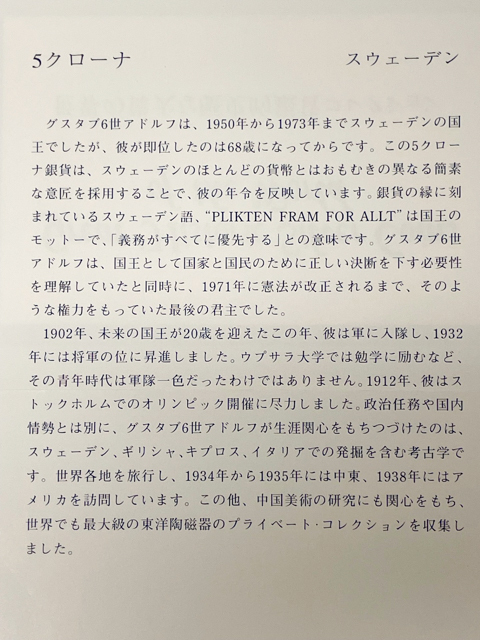 5クローナ スウェーデン
グスタブ6世アドルフは、1950年から1973年までスウェーデンの国
王でしたが、彼が即位したのは68歳になってからです。この5クロー
ナ銀貨は、スウェーデンのほとんどの貨幣とはおもむきの異なる簡素
な意匠を採用することで、彼の年令を反映しています。銀貨の縁に刻
まれているスウェーデン語、“PLIKTEN FRAM FOR ALLT”は国王の
モットーで、「義務がすべてに優先する」との意味です。グスタブ6世
アドルフは、国王として国家と国民のために正しい決断を下す必要性
を理解していたと同時に、1971年に憲法が改正されるまで、そのよ
うな権力をもっていた最後の君主でした。
1902年、未来の国王が20歳を迎えたこの年、彼は軍に入隊し、1932
年には将軍の位に昇進しました。ウプサラ大学では勉学に励むなど、
その青年時代は軍隊一色だったわけではありません。1912年、彼はス
トックホルムでのオリンピック開催に尽力しました。政治任務や国内
情勢とは別に、グスタブ6世アドルフが生涯関心をもちつづけたのは、
スウェーデン、ギリシャ、キプロス、イタリアでの発掘を含む考古学で
す。世界各地を旅行し、1934年から1935年には中東、1938年にはア
メリカを訪問しています。この他、中国美術の研究にも関心をもち、
世界でも最大級の東洋陶磁器のプライベート・コレクションを収集し
ました。